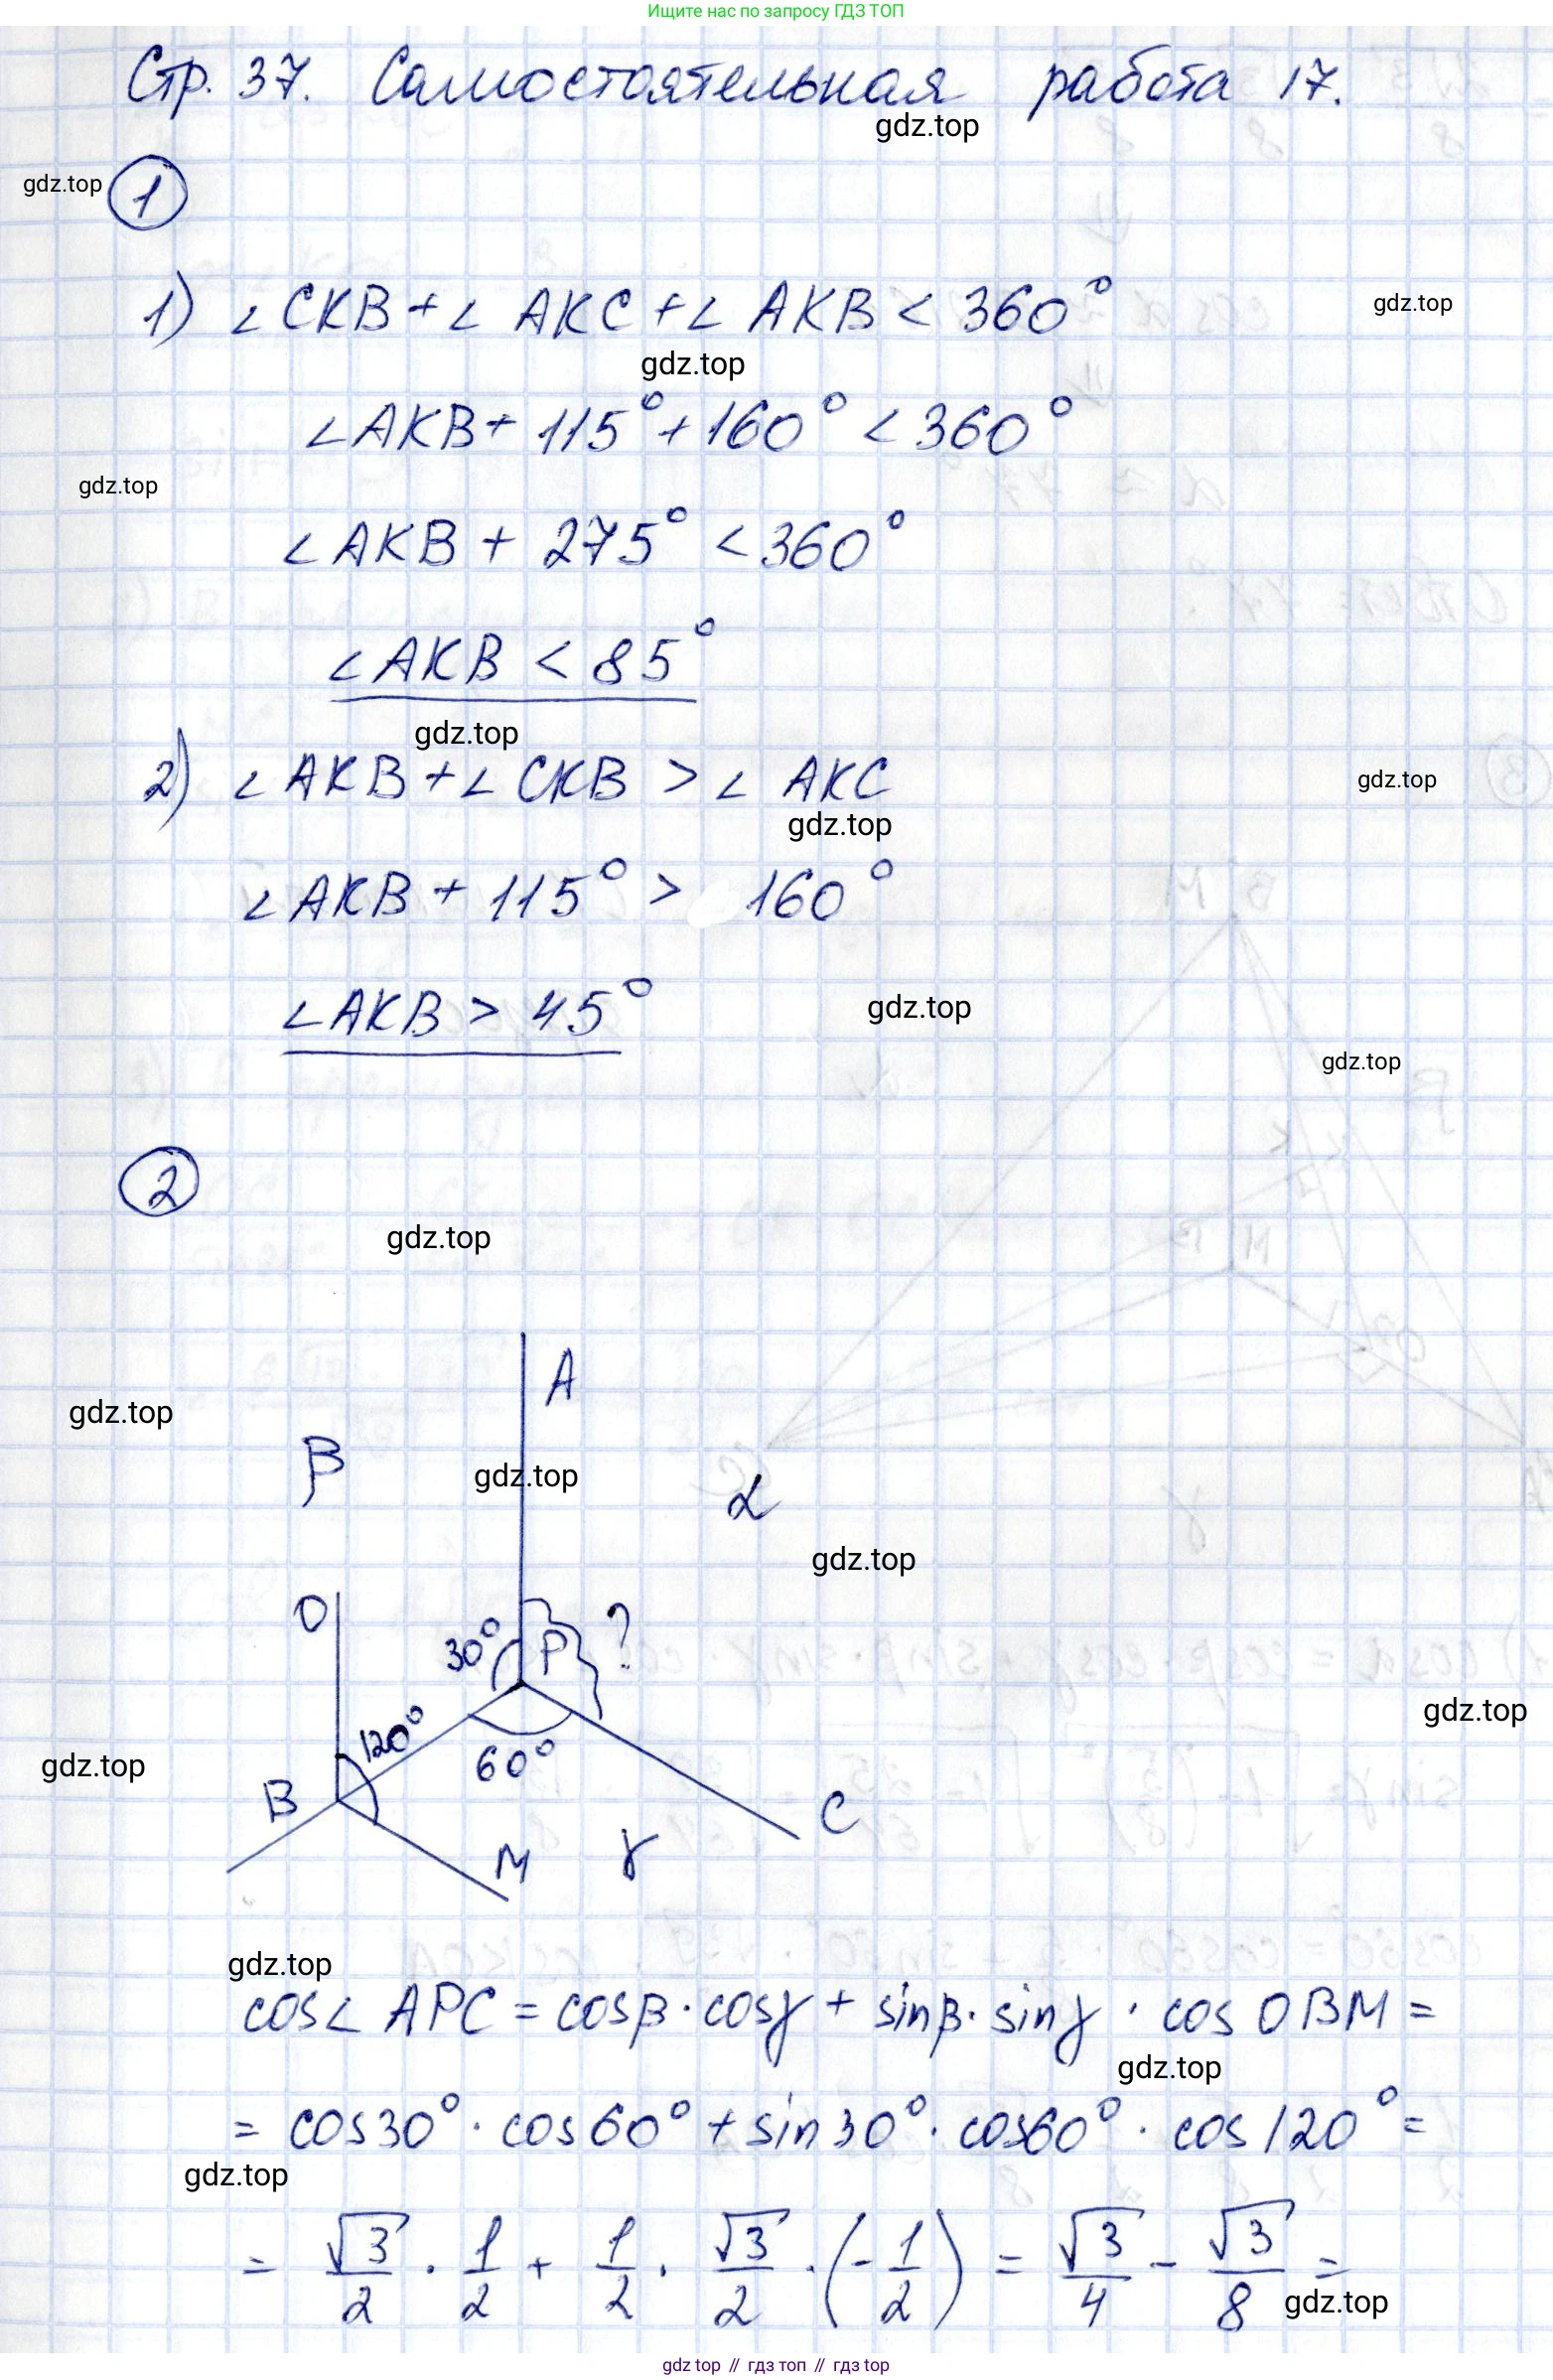 Ищите нас по запросу ГДЗ ТОП
Стр. 37. Самостоятельная работа 17.
gdz.top
gdz.top
1
1) ∠ CKB + ∠ AKC + ∠ AKB < 360°
gdz.top
gdz.top
∠AKB + 115° + 160° < 360°
gdz.top
∠AKB + 275° < 360°
∠AKB < 85°
gdz.top
2) ∠ AKB + ∠ CKB > ∠ AKC
gdz.top
gdz.top
∠AKB + 115° > 160°
∠AKB > 45°
gdz.top
gdz.top
2
gdz.top
A
gdz.top
β
gdz.top
α
gdz.top
O
30°
P
?
gdz.top
120°
60°
gdz.top
B
C
M
γ
gdz.top
cos∠ APC = cosβ · cosγ + sinβ · sinγ · cos OBM =
gdz.top
= cos30° · cos60° + sin30° · cos60° · cos120° =
gdz.top
= √3/2 · 1/2 + 1/2 · √3/2 · (-1/2) = √3/4 - √3/8 =
gdz.top
gdz top // гдз топ // гдз top